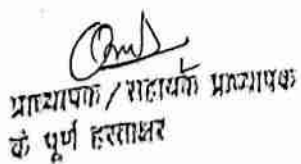 प्राध्यापक / सहायक प्राध्यापक
के पूर्ण हस्ताक्षर